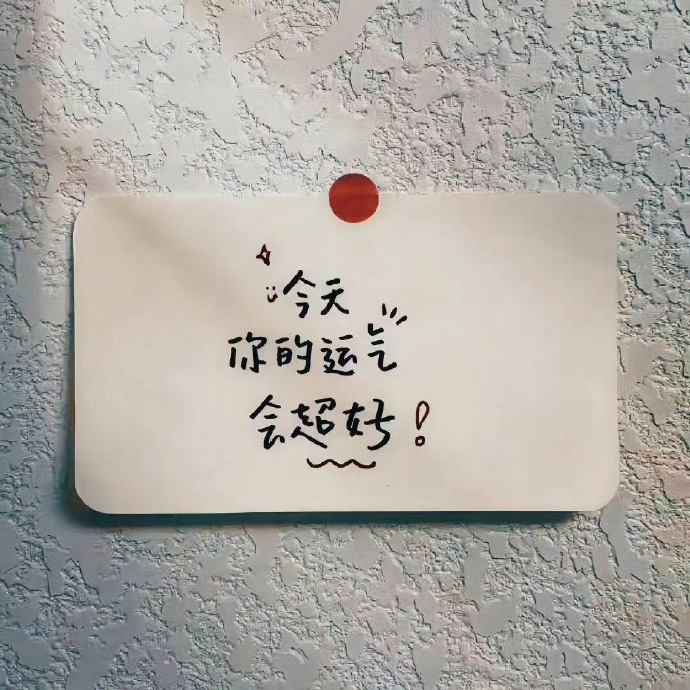 今天
你的运气
会超好！